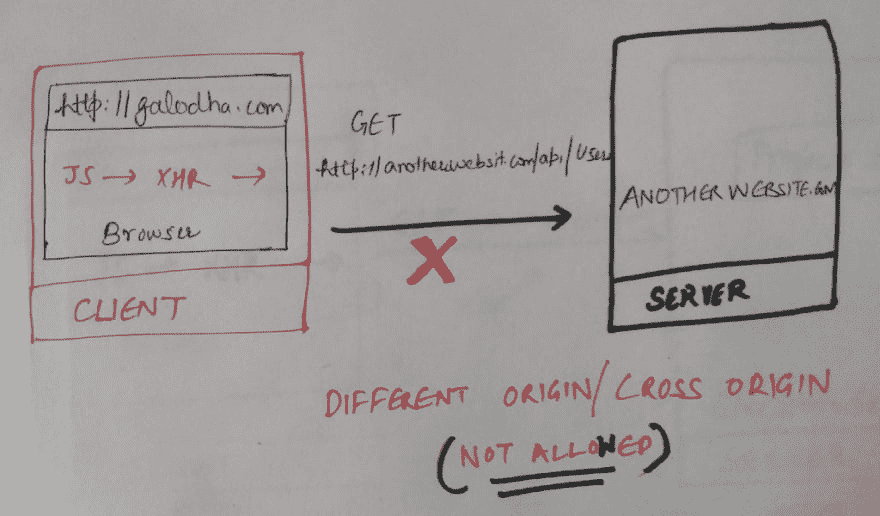 http://galodha.com
JS → XHR →
Browser
CLIENT
GET
http://anotherwebsit.com/api/User
ANOTHERWEBSITE.COM
SERVER
DIFFERENT ORIGIN/CROSS ORIGIN
(NOT ALLOWED)